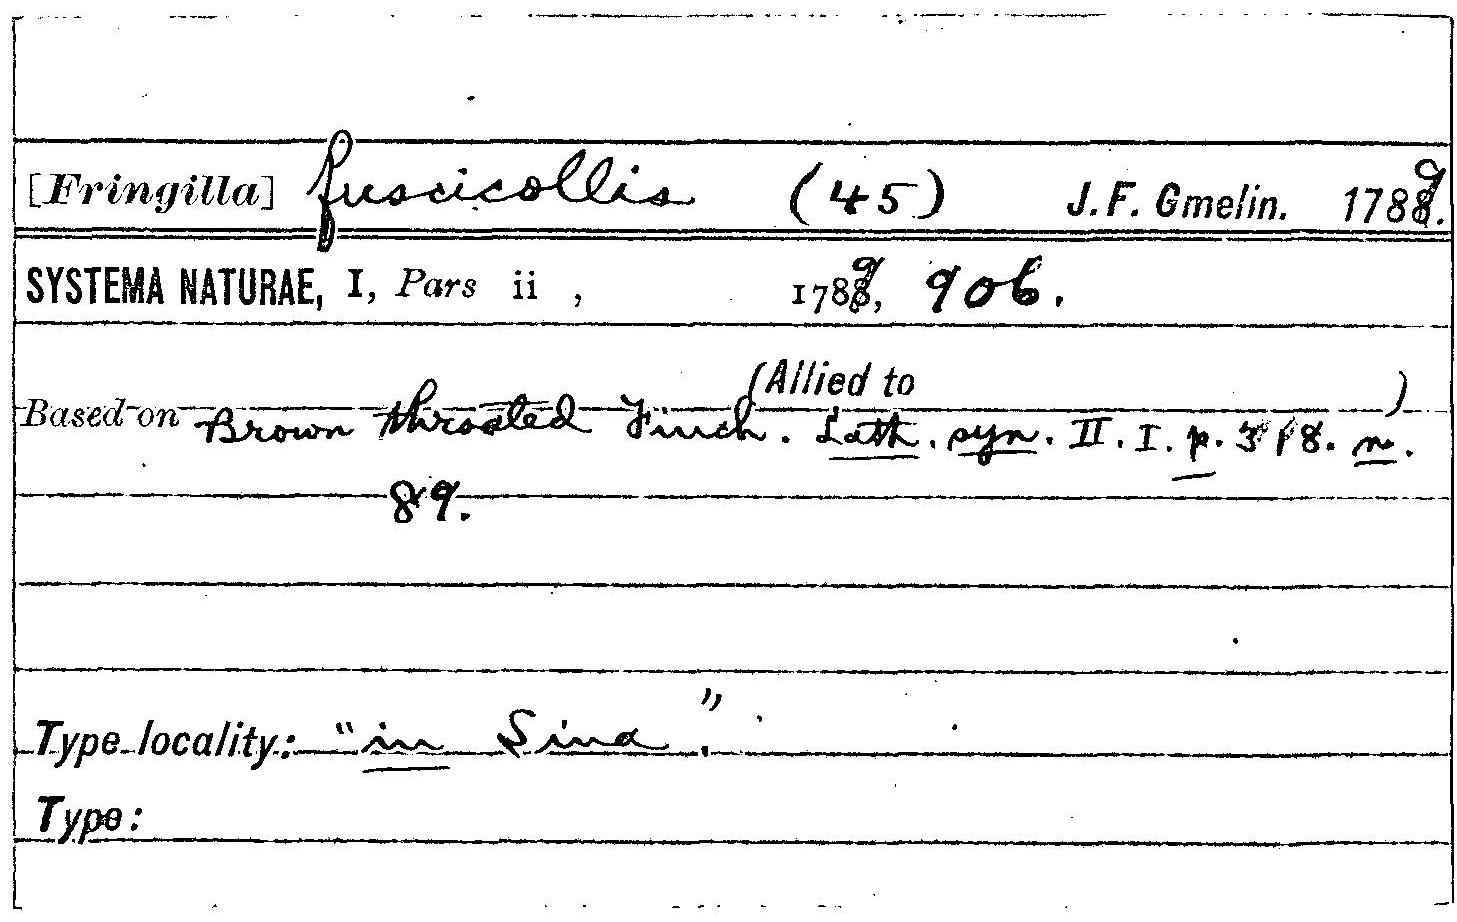 [Fringilla] fuscicollis (45) J. F. Gmelin. 1789.
SYSTEMA NATURAE, I, Pars ii , 1789, 906.
(Allied to )
Based on Brown throated Finch. Lath. syn. II. I. p. 318. n.
89.
Type locality: "in Sina".
Type: